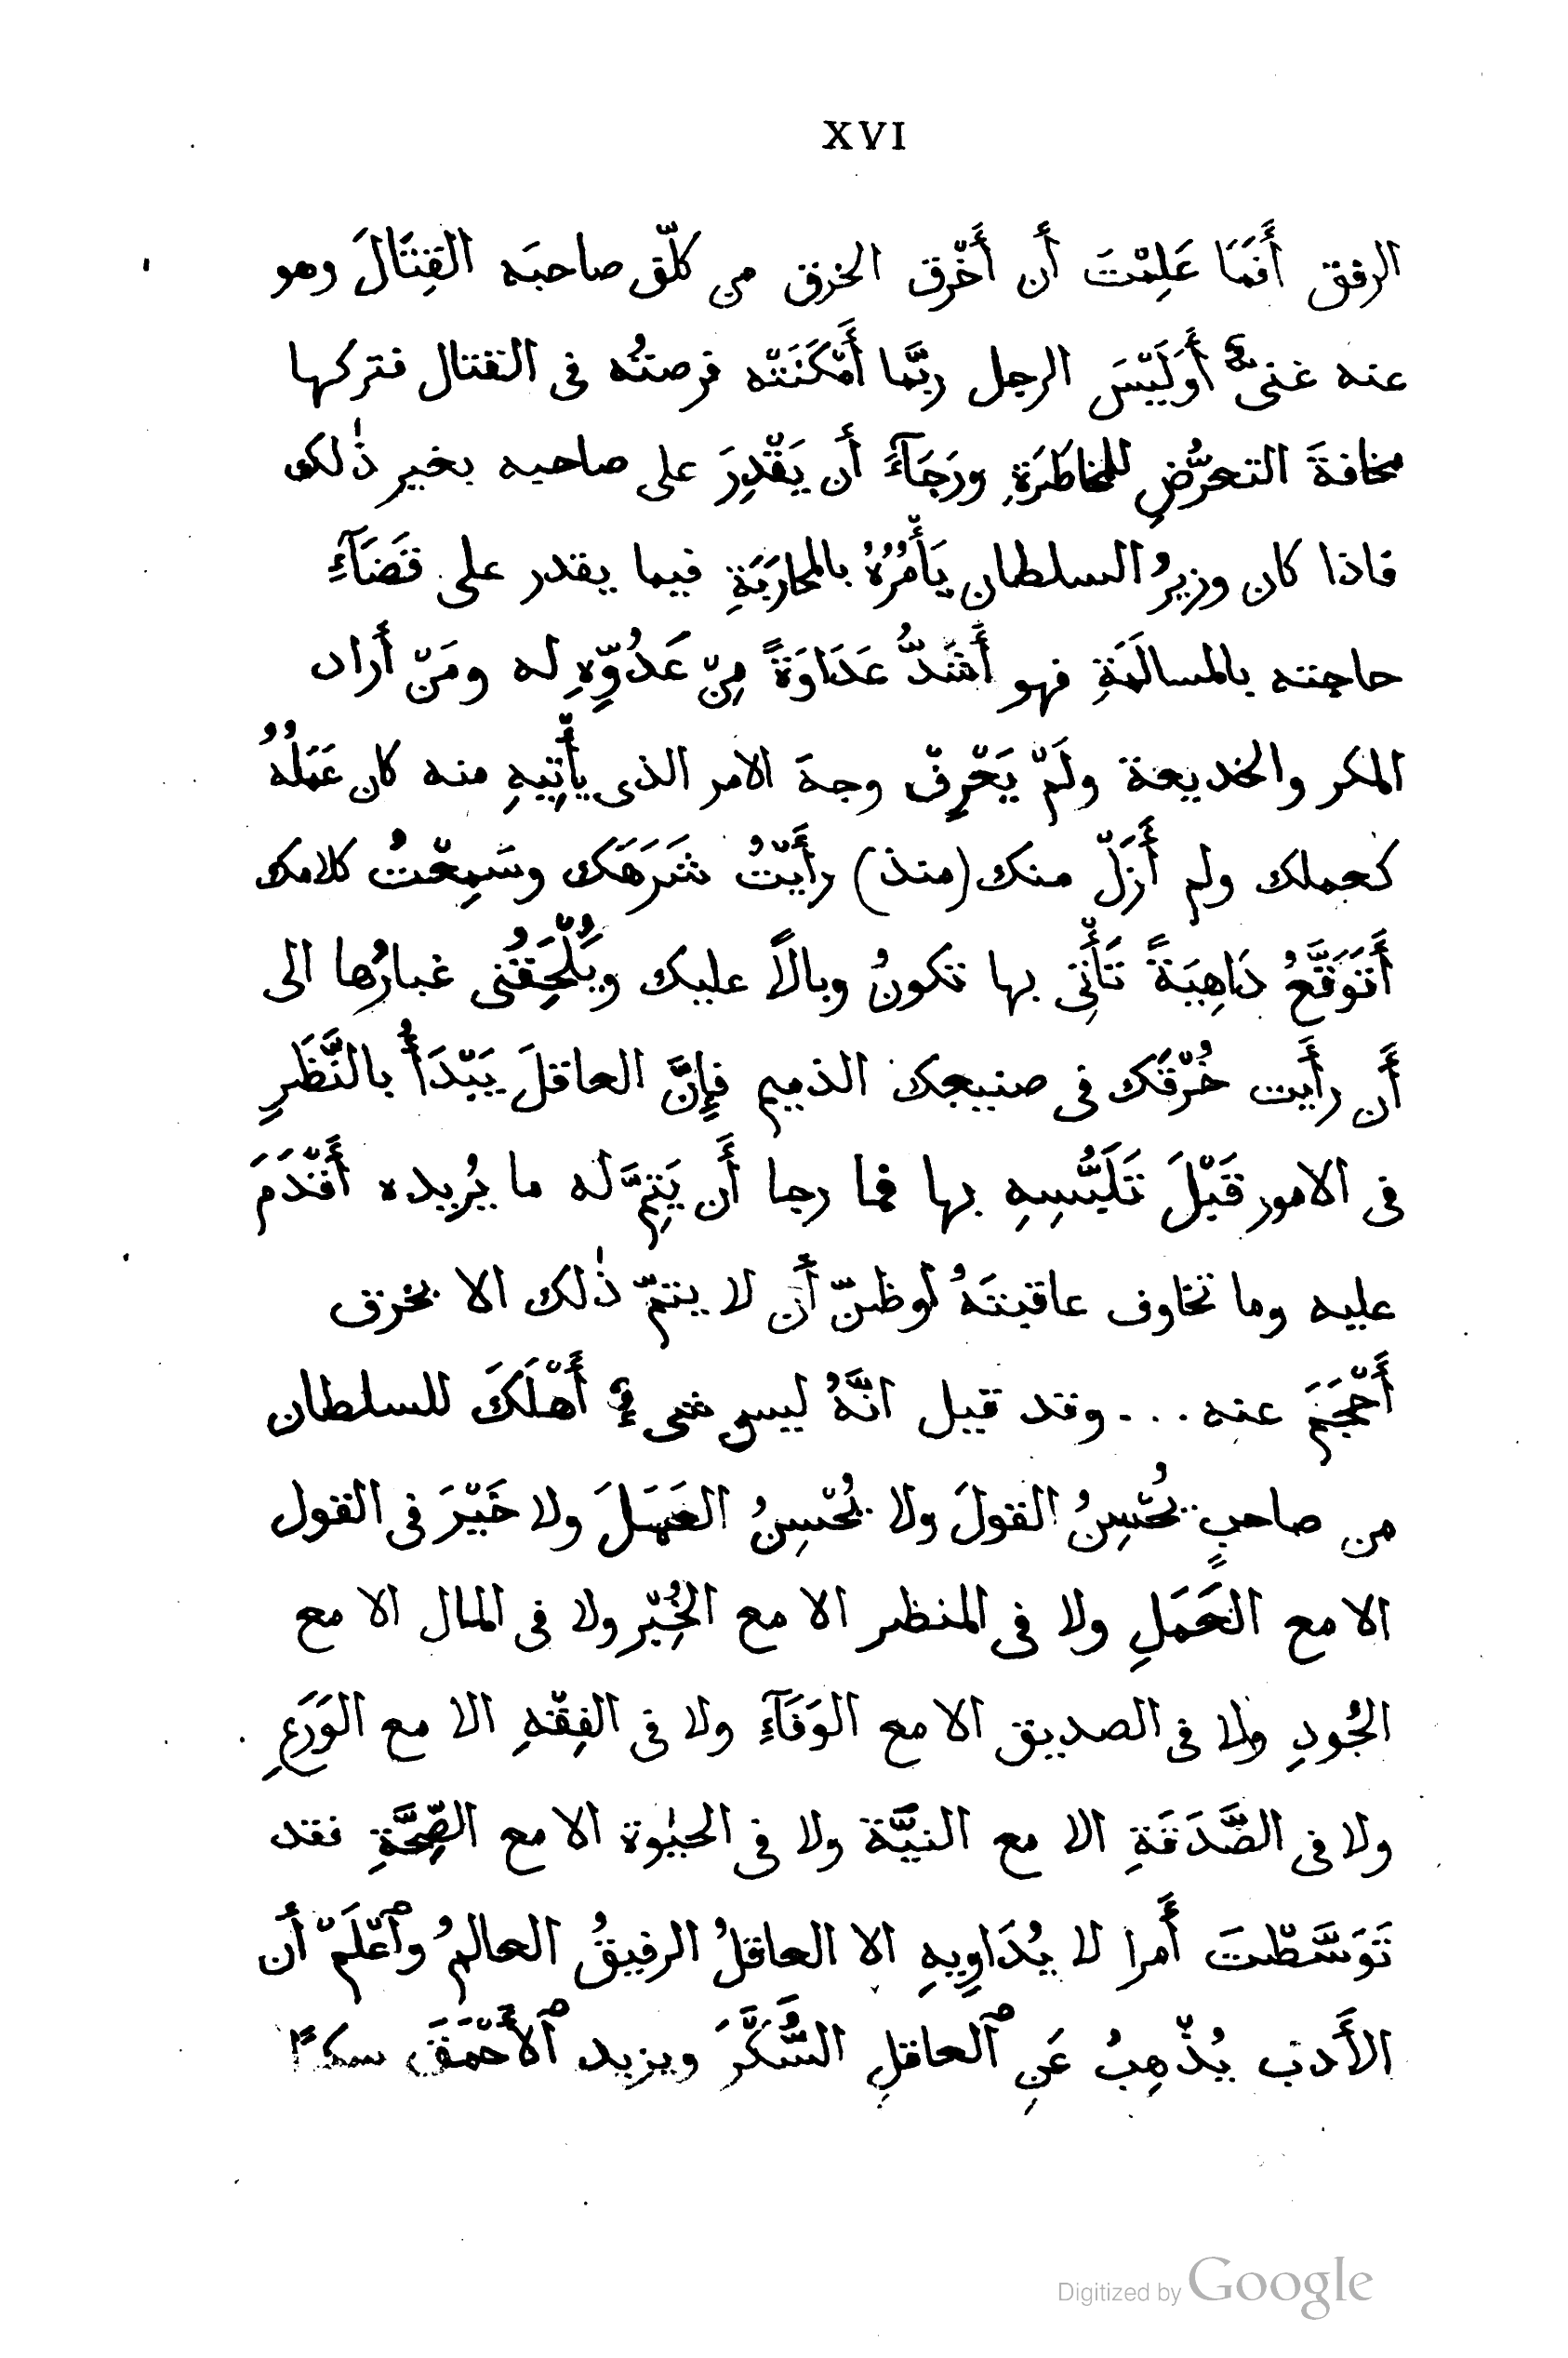 XVI
الرفق أَنَمَا عَلِمْتَ أَن أَخْرق الخرق من كلّق صاحبَه القِتَالَ وهو
عنه غنىً أَوَلَيْسَ الرجل ربَّما أَمْكَنَتْه فرصتُه فى القتال فتركها
مخافةَ التعرُّضِ للمخاطَرَةِ ورَجَآءَ أن يَقْدِرَ على صاحبه بغير ذٰلك
فاذا كان وزيرُ السلطان يَأْمُرُهُ بالمحارَبَةِ فيما يقدر على قَضَآءِ
حاجته بالمسالَمَةِ فهو أَشَدُّ عَدَاوَةً مِنْ عَدُوِّهِ له ومَنْ أراد
المكر والخديعة ولَمْ يَعْرِفْ وجهَ الامر الذى يأْتِيهِ منه كان عَمَلُهُ
كعملك ولم أَزَلْ منك (منذ) رأَيْتُ شَرَهَك وسَمِعْتُ كلامك
أَتَوَقَّعُ دَاهِيَةً تَأْتِى بها تكونُ وبالًا عليك ويُلْحِقُنى غبارُها الى
أَن رأَيت خُرْقَك فى صنيعك الذميم فإِنَّ العاقلَ يَبْدَأُ بالنَّظَرِ
فى الامور قَبْلَ تَلَبُّسِهِ بها فما رجا أَن يَتِمَّ له ما يُريده أَقْدَمَ
عليه وما تخاوف عاقبتَهُ لوظنّ أَن لا يتمّ ذٰلك الا بخرق
أَحْجَمَ عنه ... وقد قيل انَّهُ ليس شىءٌ أَهْلَكَ للسلطان
من صاحبٍ يُحْسِنُ القولَ ولا يُحْسِنُ العَمَلَ ولا خَيْرَ فى القول
الا مع العَمَلِ ولا فى المنظر الا مع الخُِبْر ولا فى المال الا مع
الجُودِ ولا فى الصديق الا مع الوَفَآءِ ولا فى الفِقْهِ الا مع الوَرَعِ
ولا فى الصَّدَقَةِ الا مع النيَّة ولا فى الحيٰوة الا مع الصِّحَّةِ فقد
تَوَسَّطْتَ أَمرا لا يُدَاوِيهِ الا العاقلُ الرفيقُ العالمُ وٱعْلَمْ أن
الأَدب يُذْهِبُ عَنِ ٱلعاقلِ السُّكْرَ ويزيد ٱلأَحْمَقَ سكرًا
Digitized by Google